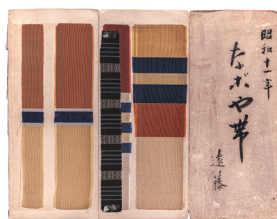 昭和十一年
たなばや帯
遠藤